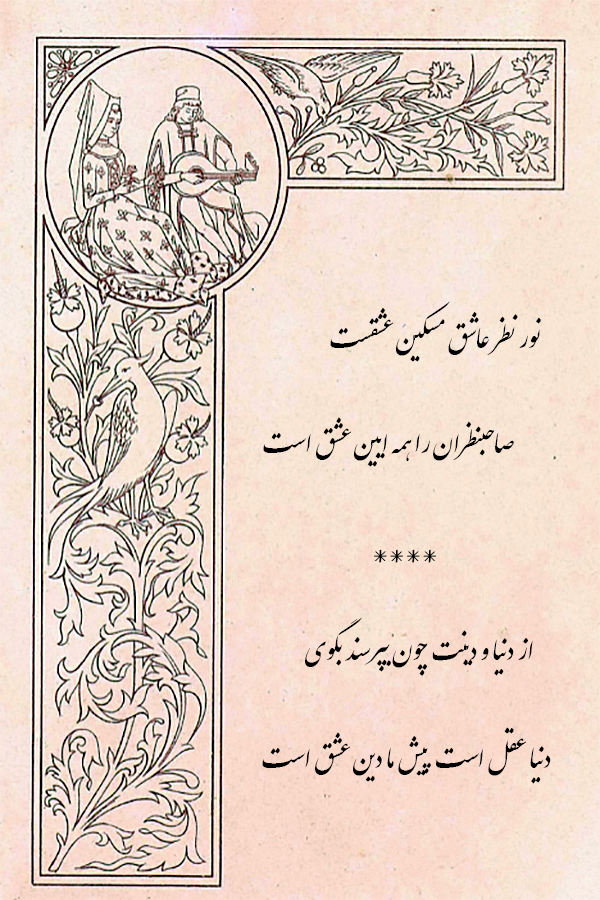 نور نظر عاشق مسکین عشقست
صاحبنظران را همه ایین عشق است
****
از دنیا و دینت چون بپرسند بگوی
دنیا عقل است پیش ما دین عشق است